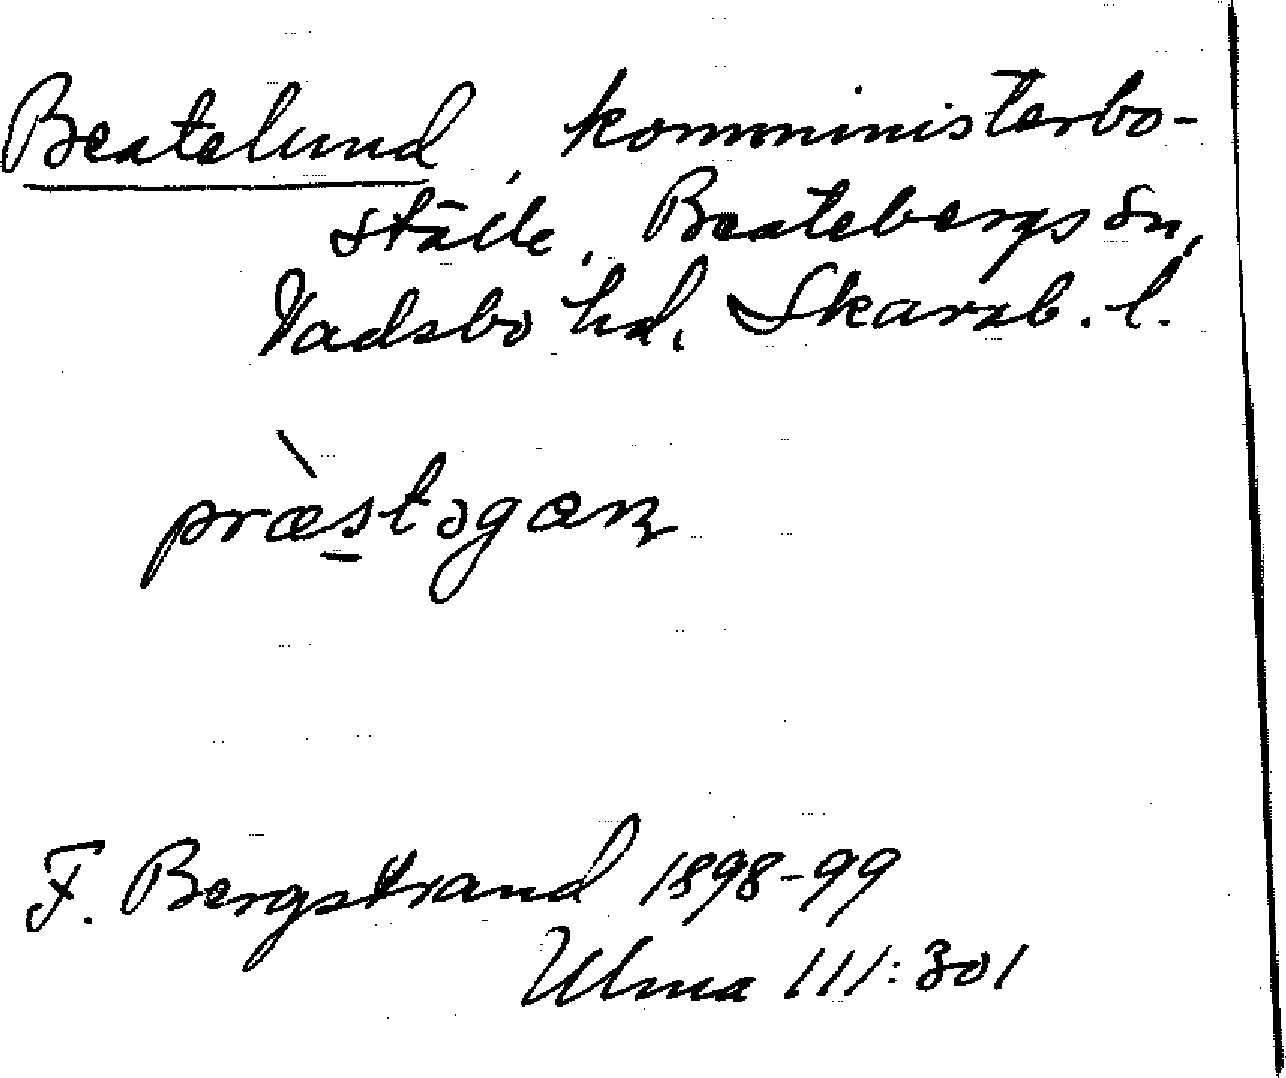 Beatelund, komministerbo-
ställe, Beatebergs sn,
Vadsbo hd. Skarab. l.
præ̀stəgaɳ
F. Bergstrand 1898-99
Ulma 111:301